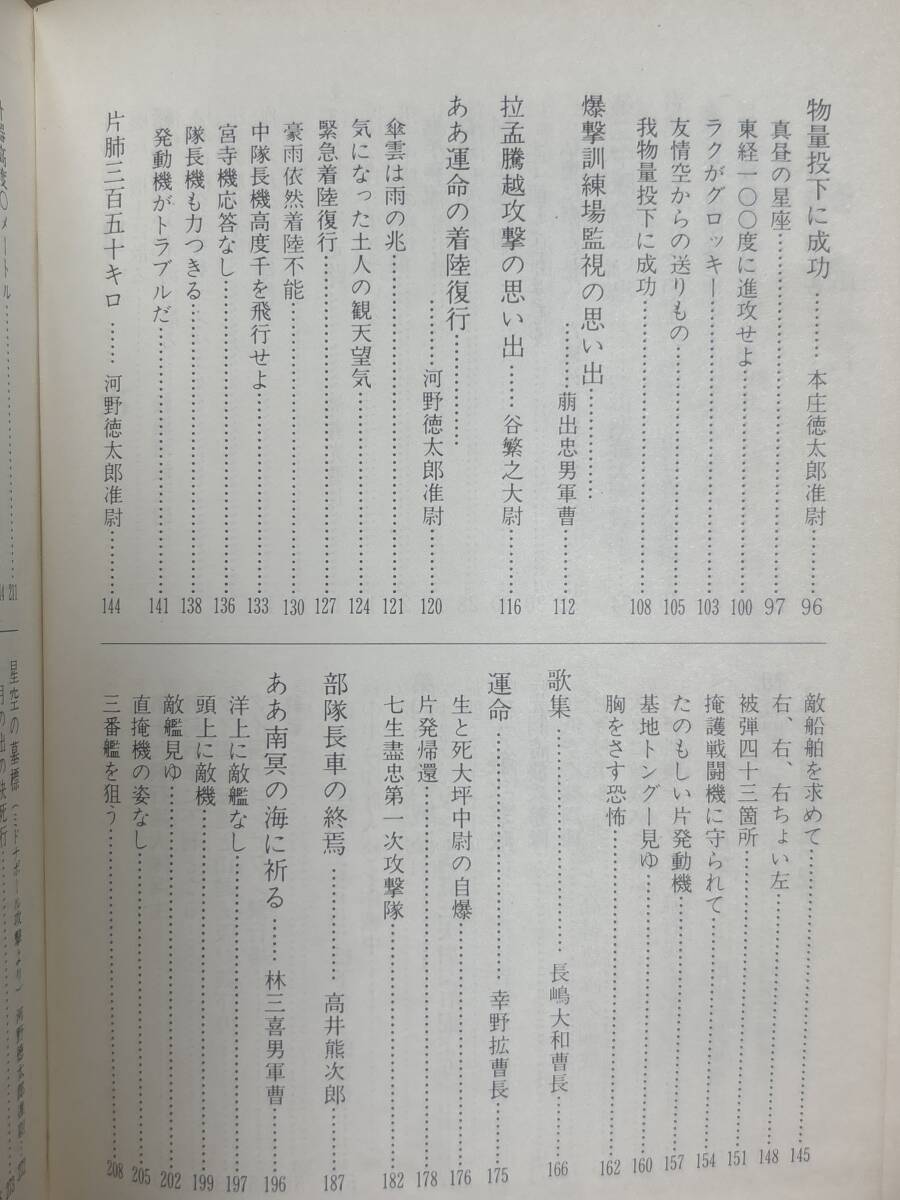 物量投下に成功………本庄徳太郎准尉………96
真昼の星座………97
東経一〇〇度に進攻せよ………100
ラクがグロッキー………103
友情空からの送りもの………105
我物量投下に成功………108
爆撃訓練場監視の思い出………
………萠出忠男軍曹………112
拉孟騰越攻撃の思い出………谷繁之大尉………116
ああ運命の着陸復行………
………河野徳太郎准尉………120
傘雲は雨の兆………121
気になった土人の観天望気………124
緊急着陸復行………127
豪雨依然着陸不能………130
中隊長機高度千を飛行せよ………133
宮寺機応答なし………136
隊長機も力つきる………138
発動機がトラブルだ………141
片肺三百五十キロ………河野徳太郎准尉………144
敵船舶を求めて………145
右、右、右ちょい左………148
被弾四十三箇所………151
掩護戦闘機に守られて………154
たのもしい片発動機………157
基地トングー見ゆ………160
胸をさす恐怖………162
歌集………長嶋大和曹長………166
運命………幸野拡曹長………175
生と死大坪中尉の自爆………176
片発帰還………178
七生盡忠第一次攻撃隊………182
部隊長車の終焉………高井熊次郎………187
ああ南冥の海に祈る………林三喜男軍曹………196
洋上に敵艦なし………197
頭上に敵機………199
敵艦見ゆ………202
直掩機の姿なし………205
三番艦を狙う………208
メートル………211
星空の墓標（ミドナポール攻撃より）河野徳太郎准尉
月の出の決死行………